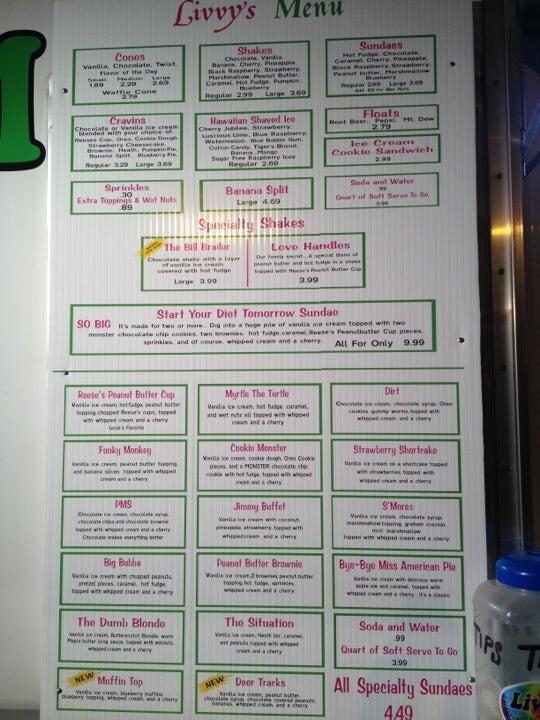 Livvy's Menu
Cones
Vanilla, Chocolate, Twist,
Flavor of the Day
Small Medium Large
1.89 2.29 2.69
Waffle Cone
2.79
Shakes
Chocolate, Vanilla,
Banana, Cherry, Pineapple,
Black Raspberry, Strawberry,
Marshmallow, Peanut Butter,
Caramel, Hot Fudge, Pumpkin,
Blueberry
Regular 2.99 Large 3.69
Sundaes
Hot Fudge, Chocolate,
Caramel, Cherry, Pineapple,
Black Raspberry, Strawberry,
Peanut butter, Marshmallow
Blueberry
Regular 2.99 Large 3.69
Add .89 for Wet Nuts
Cravins
Chocolate or Vanilla ice cream
blended with your choice of-
Reeses Cup, Oreo, Cookie Dough,
Strawberry Cheesecake,
Brownie, Heath, Pumpkin Pie,
Banana Split, Blueberry Pie,
Regular 3.29 Large 3.69
Hawaiian Shaved Ice
Cherry, Jubilee, Strawberry,
Luscious Lime, Blue Raspberry,
Watermelon, Blue Bubble Gum,
Cotton Candy, Tiger's Blood,
Banana, Mango
Sugar Free Raspberry Ice
Regular 2.69
Floats
Root Beer, Pepsi, Mt. Dew
2.79
Ice Cream
Cookie Sandwich
2.99
Sprinkles
.30
Extra Toppings & Wet Nuts
.89
Banana Split
Large 4.69
Soda and Water
.99
Quart of Soft Serve To Go
3.99
Specialty Shakes
The Bill Brailer
Chocolate shake with a layer
of vanilla ice cream
covered with hot fudge
Large 3.99
Love Handles
Our family secret... A special blend of
peanut butter and hot fudge in a shake
topped with Reese's Peanut Butter Cup
3.99
Start Your Diet Tomorrow Sundae
SO BIG It's made for two or more.. Dig into a huge pile of vanilla ice cream topped with two
monster chocolate chip cookies, two brownies, hot fudge, caramel, Reese's Peanutbutter Cup pieces,
sprinkles, and of course, whipped cream and a cherry. All For Only 9.99
Reese's Peanut Butter Cup
Vanilla ice cream, hotfudge, peanut butter
topping, chopped Reese's cups, topped
with whipped cream and a cherry
Local's Favorite
Myrtle The Turtle
Vanilla ice cream, hot fudge, caramel,
and wet nuts all topped with whipped
cream and a cherry
Dirt
Chocolate ice cream, chocolate syrup, Oreo
cookies, gummy worms, topped with
whipped cream and a cherry
Funky Monkey
Vanilla ice cream, peanut butter topping,
and banana slices topped with whipped
cream and a cherry
Cookie Monster
Vanilla ice cream, cookie dough, Oreo Cookie
pieces, and a MONSTER chocolate chip
cookie with hot fudge, topped with whipped
cream and a cherry
Strawberry Shortcake
Vanilla ice cream on a shortcake topped
with strawberries, topped with
whipped cream and a cherry
PMS
Chocolate ice cream, chocolate syrup,
chocolate chips, and chocolate brownie
topped with whipped cream and a cherry
Chocolate makes everything better
Jimmy Buffet
Vanilla ice cream with coconut,
pineapple, strawberry, topped with
whipped cream and a cherry
S'Mores
Vanilla ice cream, chocolate syrup,
marshmallow topping, graham cracker,
mini marshmallow
topped with whipped cream and a cherry
Big Bubba
Vanilla ice cream with chopped peanuts,
pretzel pieces, caramel, hot fudge,
topped with whipped cream and a cherry
Peanut Butter Brownie
Vanilla ice cream, 2 brownies, peanut butter
topping, hot fudge, sprinkles,
whipped cream and a cherry
Bye-Bye Miss American Pie
Vanilla ice cream with delicious warm
apple pie and caramel, topped with
whipped cream and a cherry. It's a classic
The Dumb Blonde
Vanilla ice cream, Butterscotch Blondie, warm
Maple butter king sauce, topped with walnuts,
whipped cream and a cherry
The Situation
Vanilla ice cream, Heath bar, caramel,
and peanuts, topped with
whipped cream and a cherry
Soda and Water
.99
Quart of Soft Serve To Go
3.99
NEW Muffin Top
Vanilla ice cream, blueberry muffins,
blueberry topping, whipped cream, and a cherry
NEW Deer Tracks
Vanilla ice cream, peanut butter,
chocolate syrup, chocolate covered peanuts,
bananas, whipped cream, and a cherry
All Specialty Sundaes
4.49
TIPS
Liv